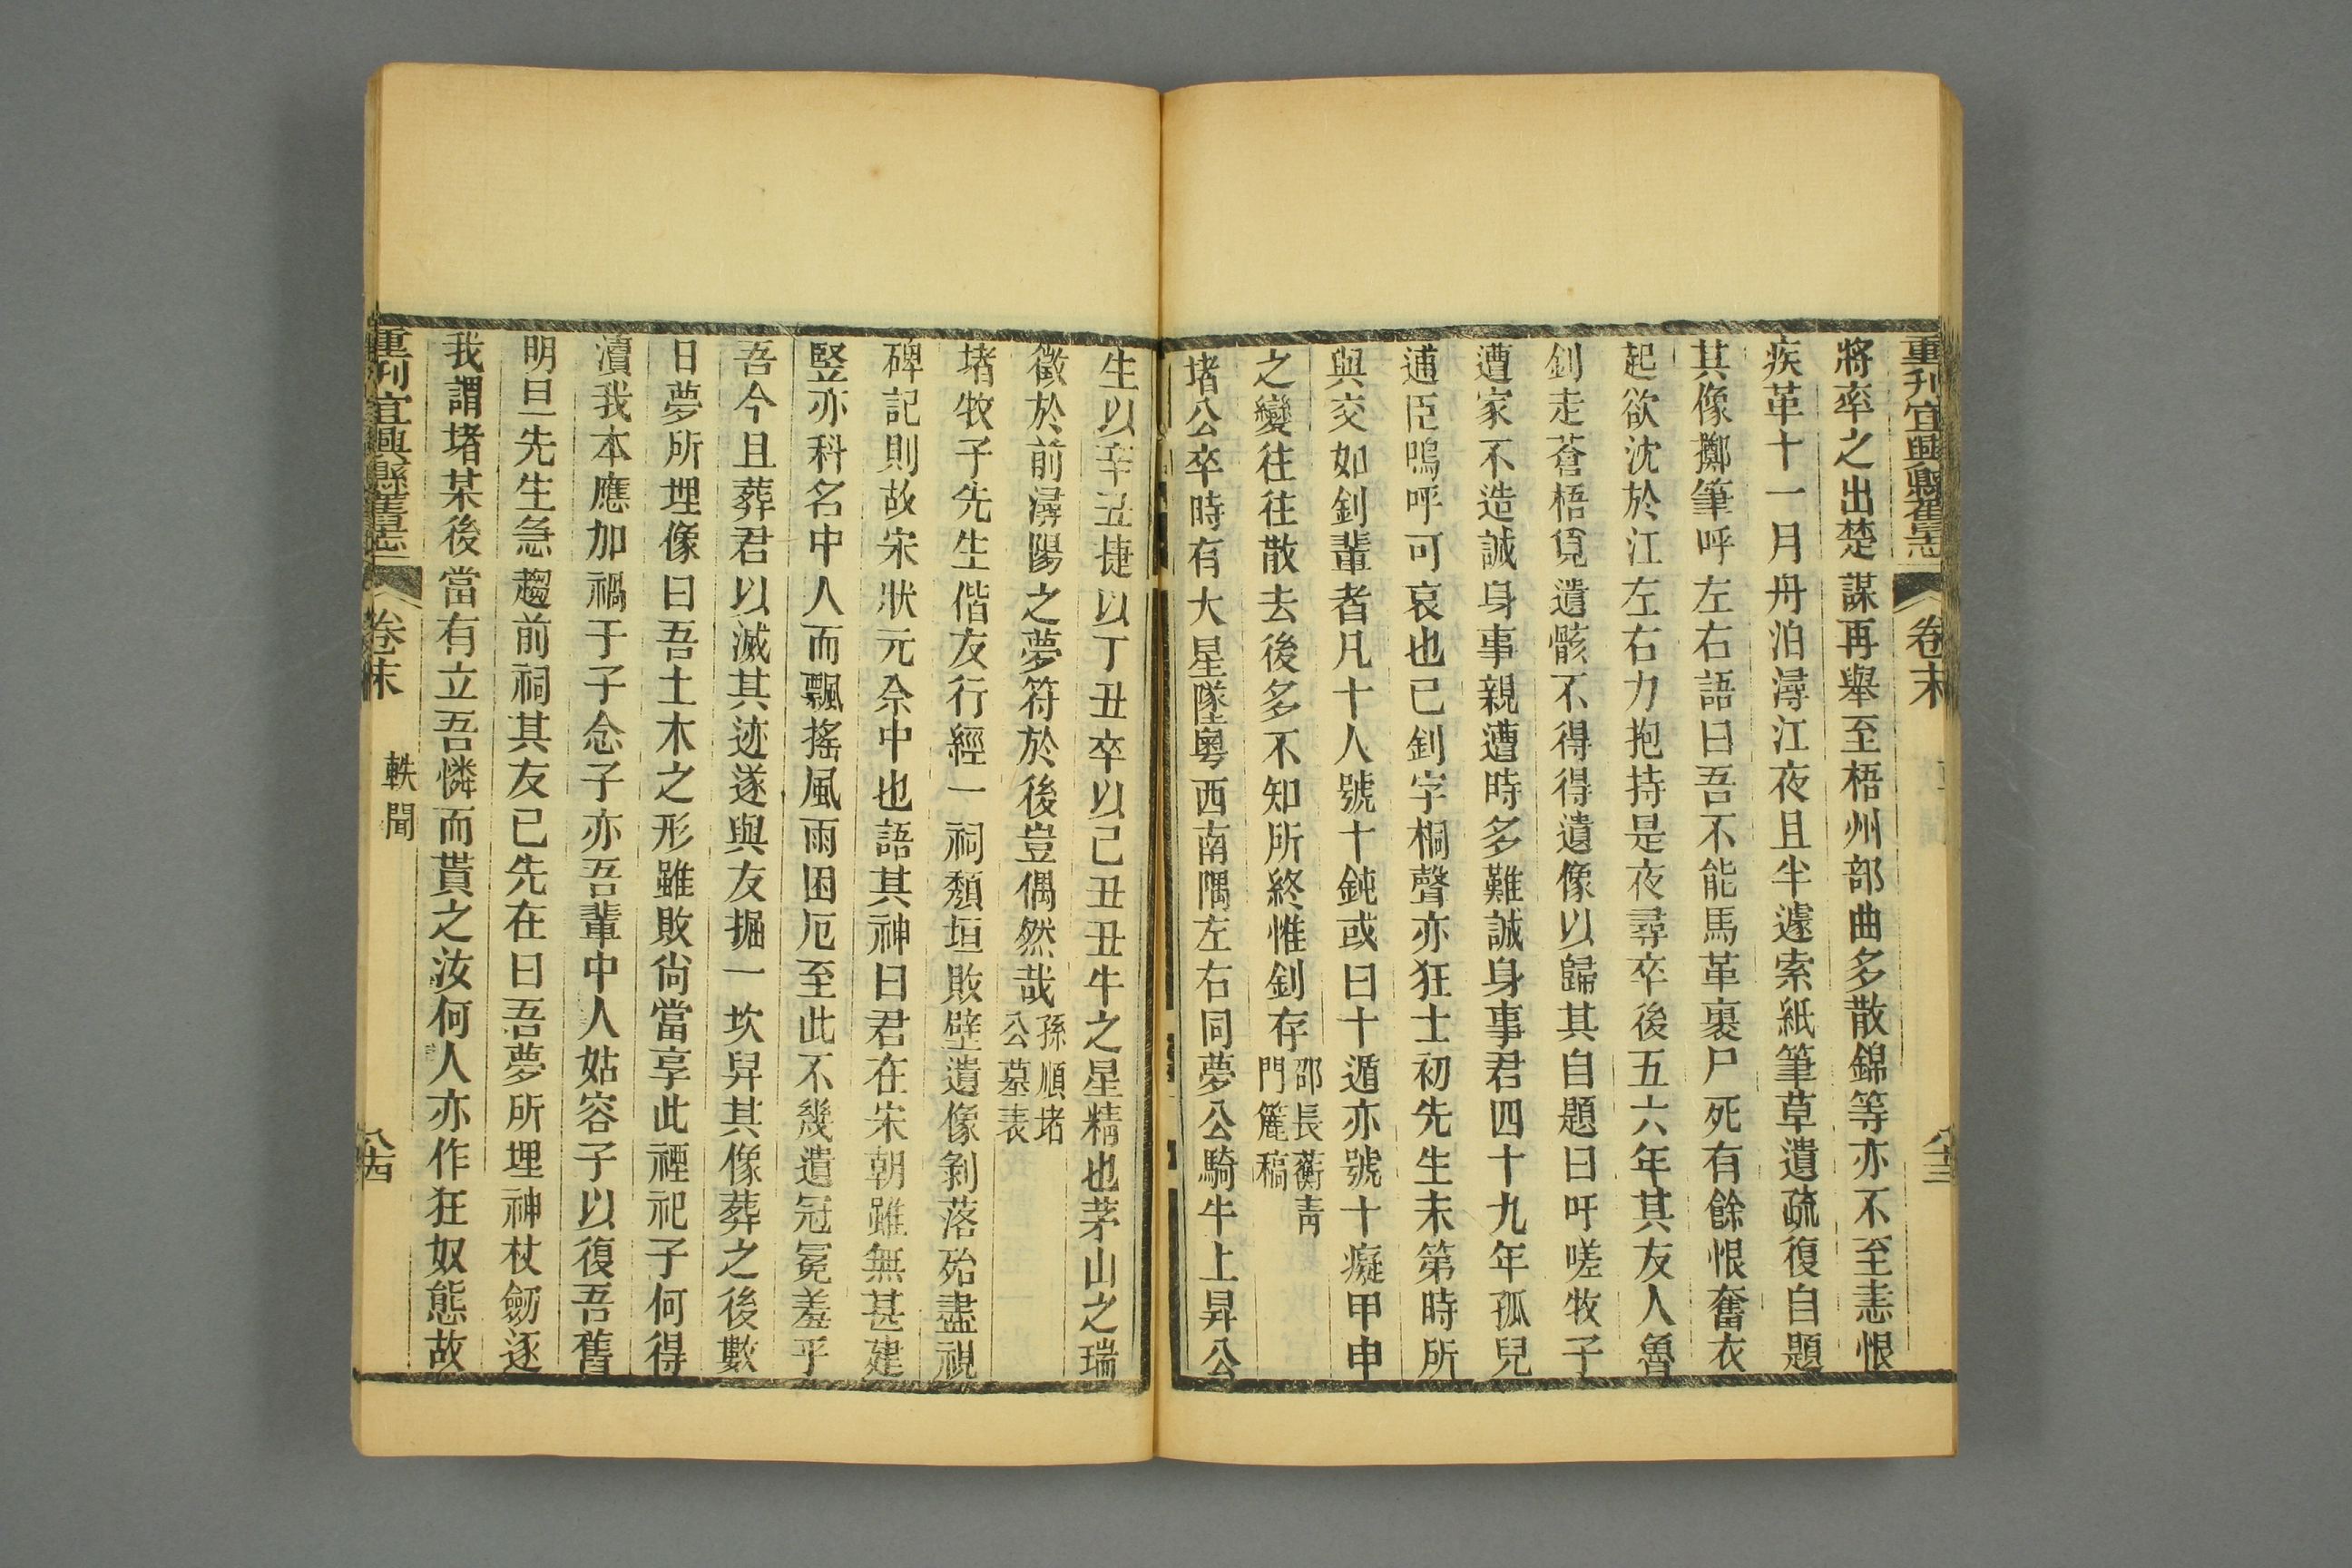 重刋宜興縣舊志 卷末 八十三
將率之出楚謀再舉至梧州部曲多散錦等亦不至恚恨
疾革十一月丹泊潯江夜且半遽索紙筆草遺疏復自題
其像擲筆呼左右語曰吾不能馬革裹尸死有餘恨奮衣
起欲沈於江左右力抱持是夜尋卒後五六年其友人魯
釗走蒼梧覓遺骸不得得遺像以歸其自題曰吁嗟牧子
遭家不造誠身事親遭時多難誠身事君四十九年孤兒
逋臣嗚呼可哀也已釗字桐聲亦狂士初先生未第時所
與交如釗輩者凡十人號十鈍或曰十遁亦號十癡甲申
之變往往散去後多不知所終惟釗存邵長蘅青門簏稿
堵公卒時有大星隊粵西南隅左右同夢公騎牛上昇公
生以辛丑捷以丁丑卒以己丑丑牛之星精也茅山之瑞
徵於前潯陽之夢符於後豈偶然哉孫順堵公墓表
堵牧子先生偕友行經一祠頹垣敗壁遺像剝落殆盡視
碑記則故宋狀元佘中也語其神曰君在宋朝雖無甚建
竪亦科名中人而飄搖風雨困厄至此不幾遺冠冕羞乎
吾今且葬君以滅其迹遂與友掘一坎舁其像葬之後數
日夢所埋像曰吾土木之形雖敗尙當享此禋祀子何得
瀆我本應加禍于子念子亦吾輩中人姑容子以復吾舊
明旦先生急趨前祠其友已先在曰吾夢所埋神杖劒逐
我謂堵某後當有立吾憐而貰之汝何人亦作狂奴態故
重刋宜興縣舊志 卷末 軼聞 八十四